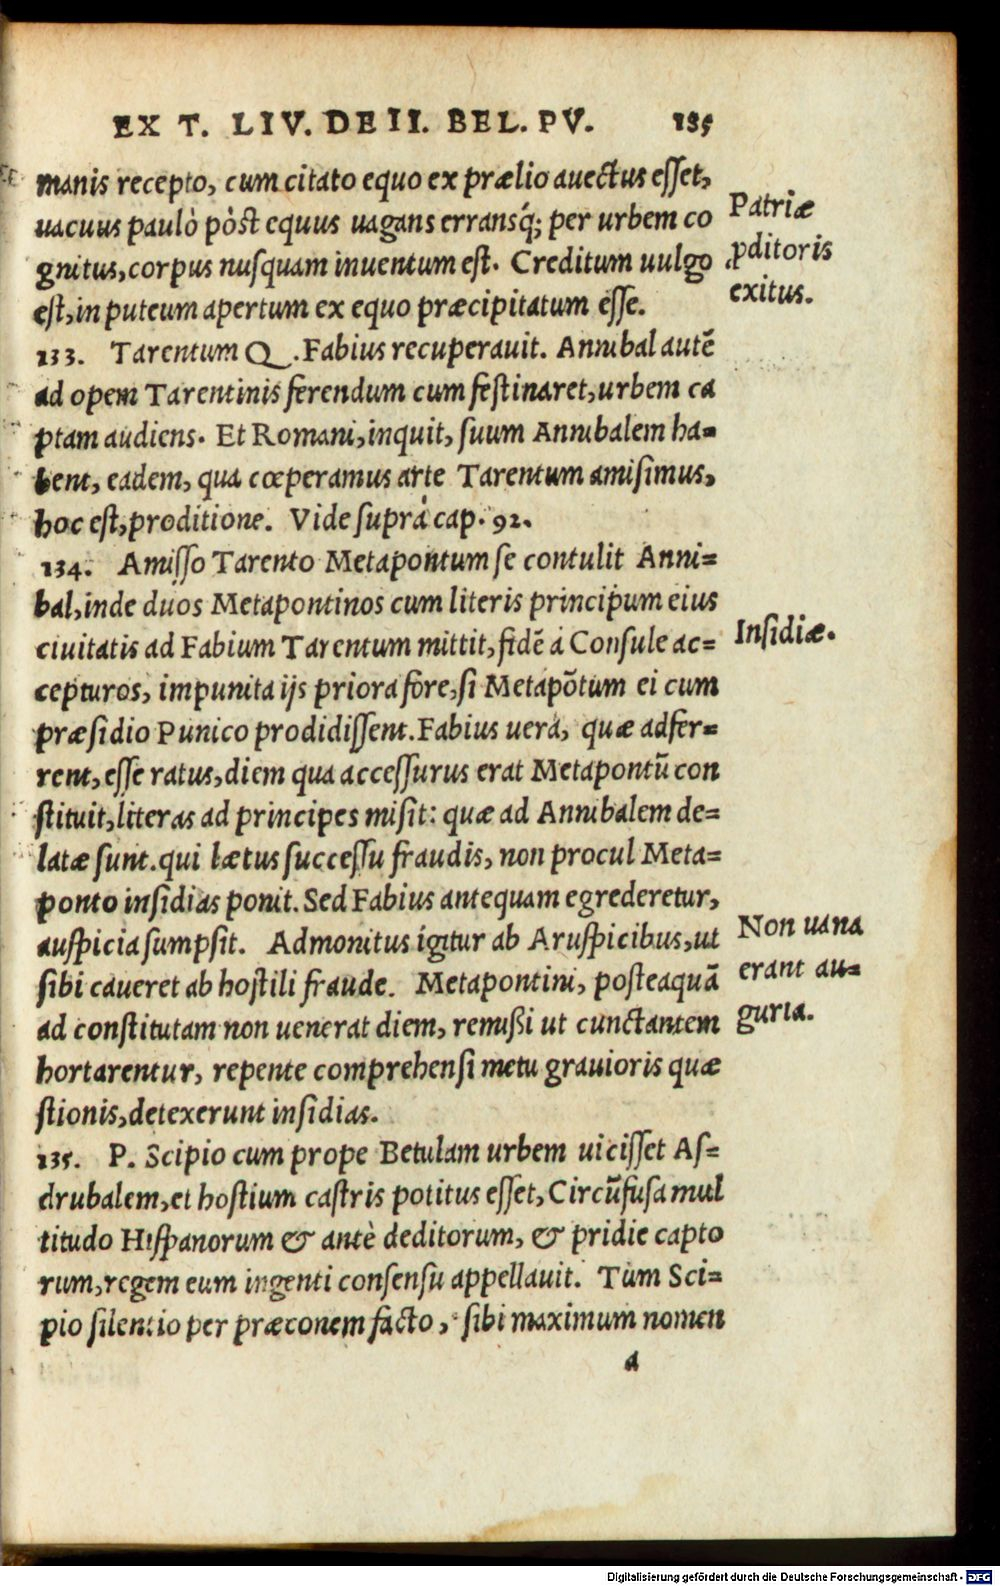 EX T. LIV. DE II. BEL. PV. 135
manis recepto, cum citato equo ex prælio auectus esset,
uacuus paulò pòst equus uagans erransq́; per urbem co
gnitus, corpus nusquam inuentum est. Creditum uulgo
est, in puteum apertum ex equo præcipitatum esse.
Patriæ
ꝓditoris
exitus.
133. Tarentum Q. Fabius recuperauit. Annibal autē
ad opem Tarentinis ferendum cum festinaret, urbem ca
ptam audiens. Et Romani, inquit, suum Annibalem ha=
bent, eadem, qua cœperamus arte Tarentum amisimus,
hoc est, proditione. Vide suprà cap. 92.
134. Amisso Tarento Metapontum se contulit Anni=
bal, inde duos Metapontinos cum literis principum eius
ciuitatis ad Fabium Tarentum mittit, fidē à Consule ac=
cepturos, impunita ijs priora fore, si Metapōtum ei cum
præsidio Punico prodidissent. Fabius uera, quæ adfer=
rent, esse ratus, diem qua accessurus erat Metapontū con
stituit, literas ad principes misit: quæ ad Annibalem de=
latæ sunt. qui lætus successu fraudis, non procul Meta=
ponto insidias ponit. Sed Fabius antequam egrederetur,
auspicia sumpsit. Admonitus igitur ab Aruspicibus, ut
sibi caueret ab hostili fraude. Metapontini, posteaquā
ad constitutam non uenerat diem, remißi ut cunctantem
hortarentur, repente comprehensi metu grauioris quæ
stionis, detexerunt insidias.
Insidiæ.
Non uana
erant au=
guria.
135. P. Scipio cum prope Betulam urbem uicisset As=
drubalem, et hostium castris potitus esset, Circūfusa mul
titudo Hispanorum & antè deditorum, & pridie capto
rum, regem eum ingenti consensu appellauit. Tum Sci=
pio silentio per præconem facto, sibi maximum nomen
a
Digitalisierung gefördert durch die Deutsche Forschungsgemeinschaft - DFG